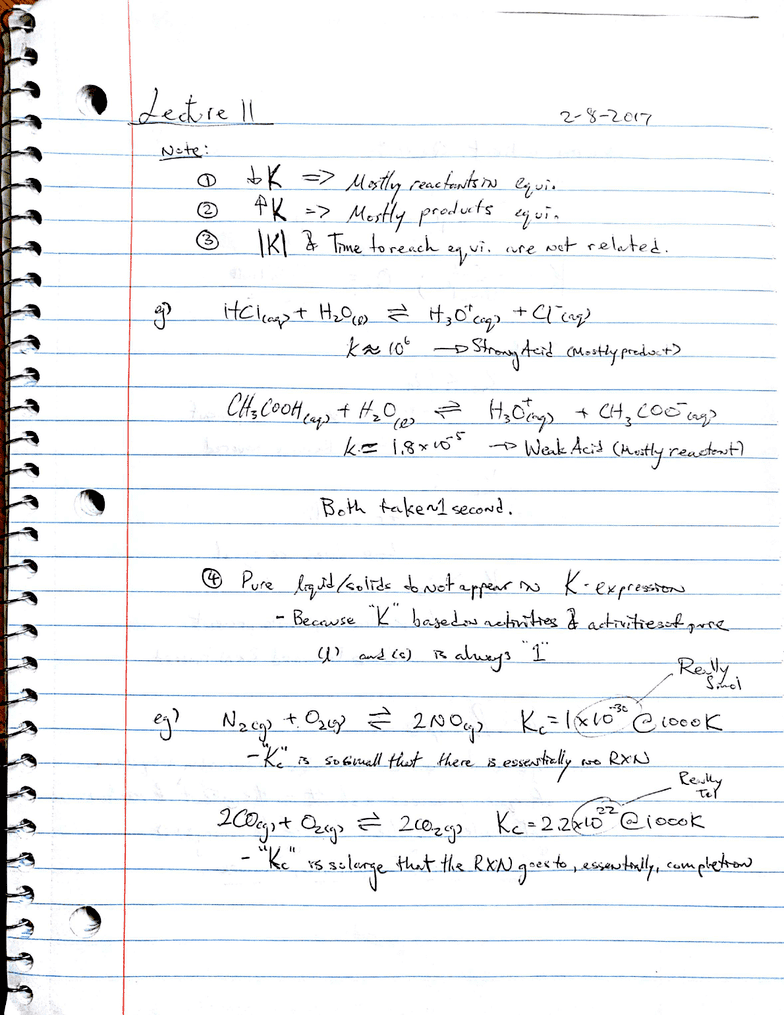 Lecture 11
2-8-2017
Note:
① ↓K => Mostly reactants in equi.
② ↑K => Mostly products equi.
③ |K| & Time to reach equi. are not related.
eg) HCl(aq) + H₂O(l) ⇌ H₃O⁺(aq) + Cl⁻(aq)
K ≈ 10⁶ → Strong Acid (Mostly product)
CH₃COOH(aq) + H₂O(l) ⇌ H₃O⁺(aq) + CH₃COO⁻(aq)
K = 1.8×10⁻⁵ → Weak Acid (Mostly reactant)
Both take ~1 second.
④ Pure liquid/solids do not appear in K-expression
- Because "K" based on activities & activities of pure
(l) and (s) is always "1"
Really
Smol
eg) N₂(g) + O₂(g) ⇌ 2NO(g) Kc = 1×10⁻³⁰ @ 1000K
- "Kc" is so small that there is essentially no RXN
Really
Tol
2CO(g) + O₂(g) ⇌ 2CO₂(g) Kc = 2.2×10²² @ 1000K
- "Kc" is so large that the RXN goes to, essentially, completion